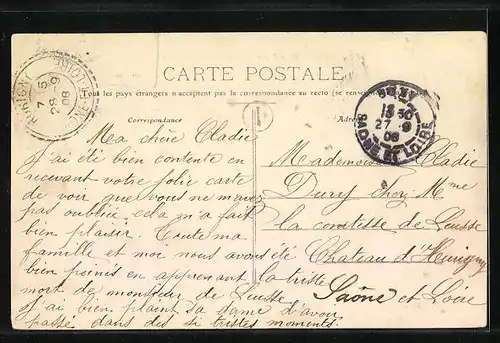 CARTE POSTALE
Tous les pays étrangers n'acceptent pas la correspondance au recto (se renseigner
Correspondance
Ma chère Cladie
j'ai été bien contente en
recevant votre jolie carte
de voir que vous ne m'avez
pas oubliée, cela m'a fait
bien plaisir. Toute ma
famille et moi nous avons été
bien peinés en apprenant la triste
mort de monsieur de Leusse
j'ai bien plaint sa dame d'avoir
passé dans des si tristes moments.
Adre
Mademoiselle Cladie
Dury chez Mme
la comtesse de Leusse
Château d'Heurigny
Saône et Loire
7 5
28 9
08
13 30
27 9
08
SAONE ET LOIRE